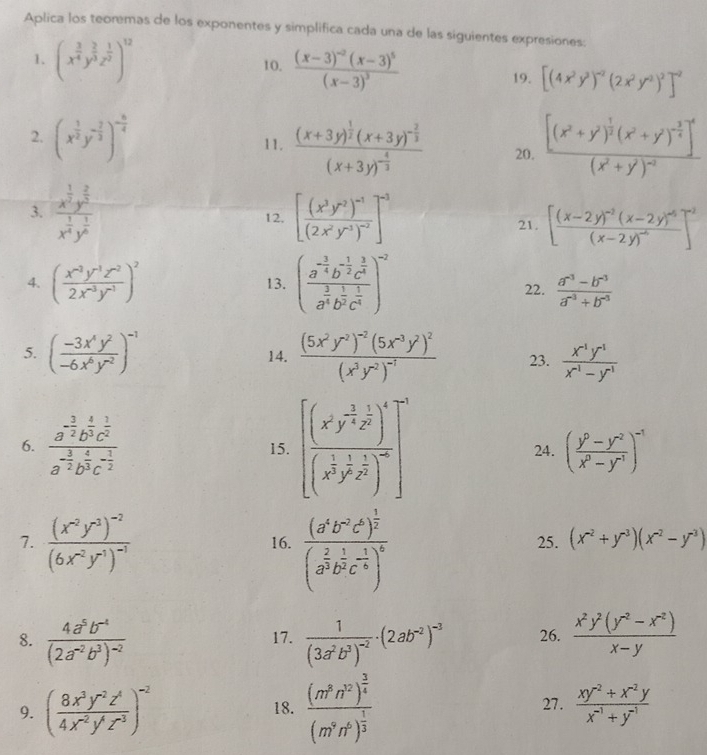 Aplica los teoremas de los exponentes y simplifica cada una de las siguientes expresiones:
1. $\left(x^{\frac{3}{4}} y^{\frac{2}{3}} z^{\frac{1}{2}}\right)^{12}$
2. $\left(x^{\frac{1}{2}} y^{-\frac{2}{3}}\right)^{-\frac{6}{4}}$
3. $\frac{x^{\frac{1}{2}} y^{\frac{2}{3}}}{x^{\frac{1}{4}} y^{\frac{1}{6}}}$
4. $\left(\frac{x^{-3} y^{-1} z^{-2}}{2x^{-3} y^{-1}}\right)^{2}$
5. $\left(\frac{-3x^{4} y^{2}}{-6x^{6} y^{-2}}\right)^{-1}$
6. $\frac{a^{-\frac{3}{2}} b^{\frac{4}{3}} c^{\frac{1}{2}}}{a^{-\frac{3}{2}} b^{\frac{4}{3}} c^{-\frac{1}{2}}}$
7. $\frac{(x^{-2} y^{-3})^{-2}}{(6x^{-2} y^{-1})^{-1}}$
8. $\frac{4a^{5} b^{-4}}{(2a^{-2} b^{3})^{-2}}$
9. $\left(\frac{8x^{3} y^{-2} z^{4}}{4x^{-2} y^{4} z^{-3}}\right)^{-2}$
10. $\frac{(x-3)^{-2}(x-3)^{5}}{(x-3)^{3}}$
11. $\frac{(x+3y)^{\frac{1}{2}}(x+3y)^{-\frac{2}{3}}}{(x+3y)^{-\frac{4}{3}}}$
12. $\left[\frac{(x^{3} y^{-2})^{-1}}{(2x^{2} y^{-3})^{-2}}\right]^{-3}$
13. $\left(\frac{a^{-\frac{3}{4}} b^{-\frac{1}{2}} c^{\frac{3}{4}}}{a^{\frac{3}{4}} b^{\frac{1}{2}} c^{\frac{1}{4}}}\right)^{-2}$
14. $\frac{(5x^{2} y^{-2})^{-2}(5x^{-3} y^{2})^{2}}{(x^{3} y^{-2})^{-1}}$
15. $\left[\frac{\left(x^{2} y^{-\frac{3}{4}} z^{\frac{1}{2}}\right)^{4}}{\left(x^{\frac{1}{3}} y^{\frac{1}{6}} z^{\frac{1}{2}}\right)^{-6}}\right]^{-1}$
16. $\frac{(a^{4} b^{-2} c^{6})^{\frac{1}{2}}}{\left(a^{\frac{2}{3}} b^{\frac{1}{2}} c^{-\frac{1}{6}}\right)^{6}}$
17. $\frac{1}{(3a^{2} b^{3})^{-2}} \cdot (2ab^{-2})^{-3}$
18. $\frac{(m^{8} n^{12})^{\frac{3}{4}}}{(m^{9} n^{6})^{\frac{1}{3}}}$
19. $[(4x^{2} y^{3})^{-2}(2x^{2} y^{-3})^{2}]^{-2}$
20. $\frac{\left[(x^{2}+y^{2})^{\frac{1}{2}}(x^{2}+y^{2})^{-\frac{3}{4}}\right]^{4}}{(x^{2}+y^{2})^{-2}}$
21. $\left[\frac{(x-2y)^{-2}(x-2y)^{-6}}{(x-2y)^{-6}}\right]^{-2}$
22. $\frac{a^{-3}-b^{-3}}{a^{-3}+b^{-3}}$
23. $\frac{x^{-1} y^{-1}}{x^{-1}-y^{-1}}$
24. $\left(\frac{y^{0}-y^{-2}}{x^{0}-y^{-1}}\right)^{-1}$
25. $(x^{-2}+y^{-3})(x^{-2}-y^{-3})$
26. $\frac{x^{2} y^{2}(y^{-2}-x^{-2})}{x-y}$
27. $\frac{xy^{-2}+x^{-2} y}{x^{-1}+y^{-1}}$